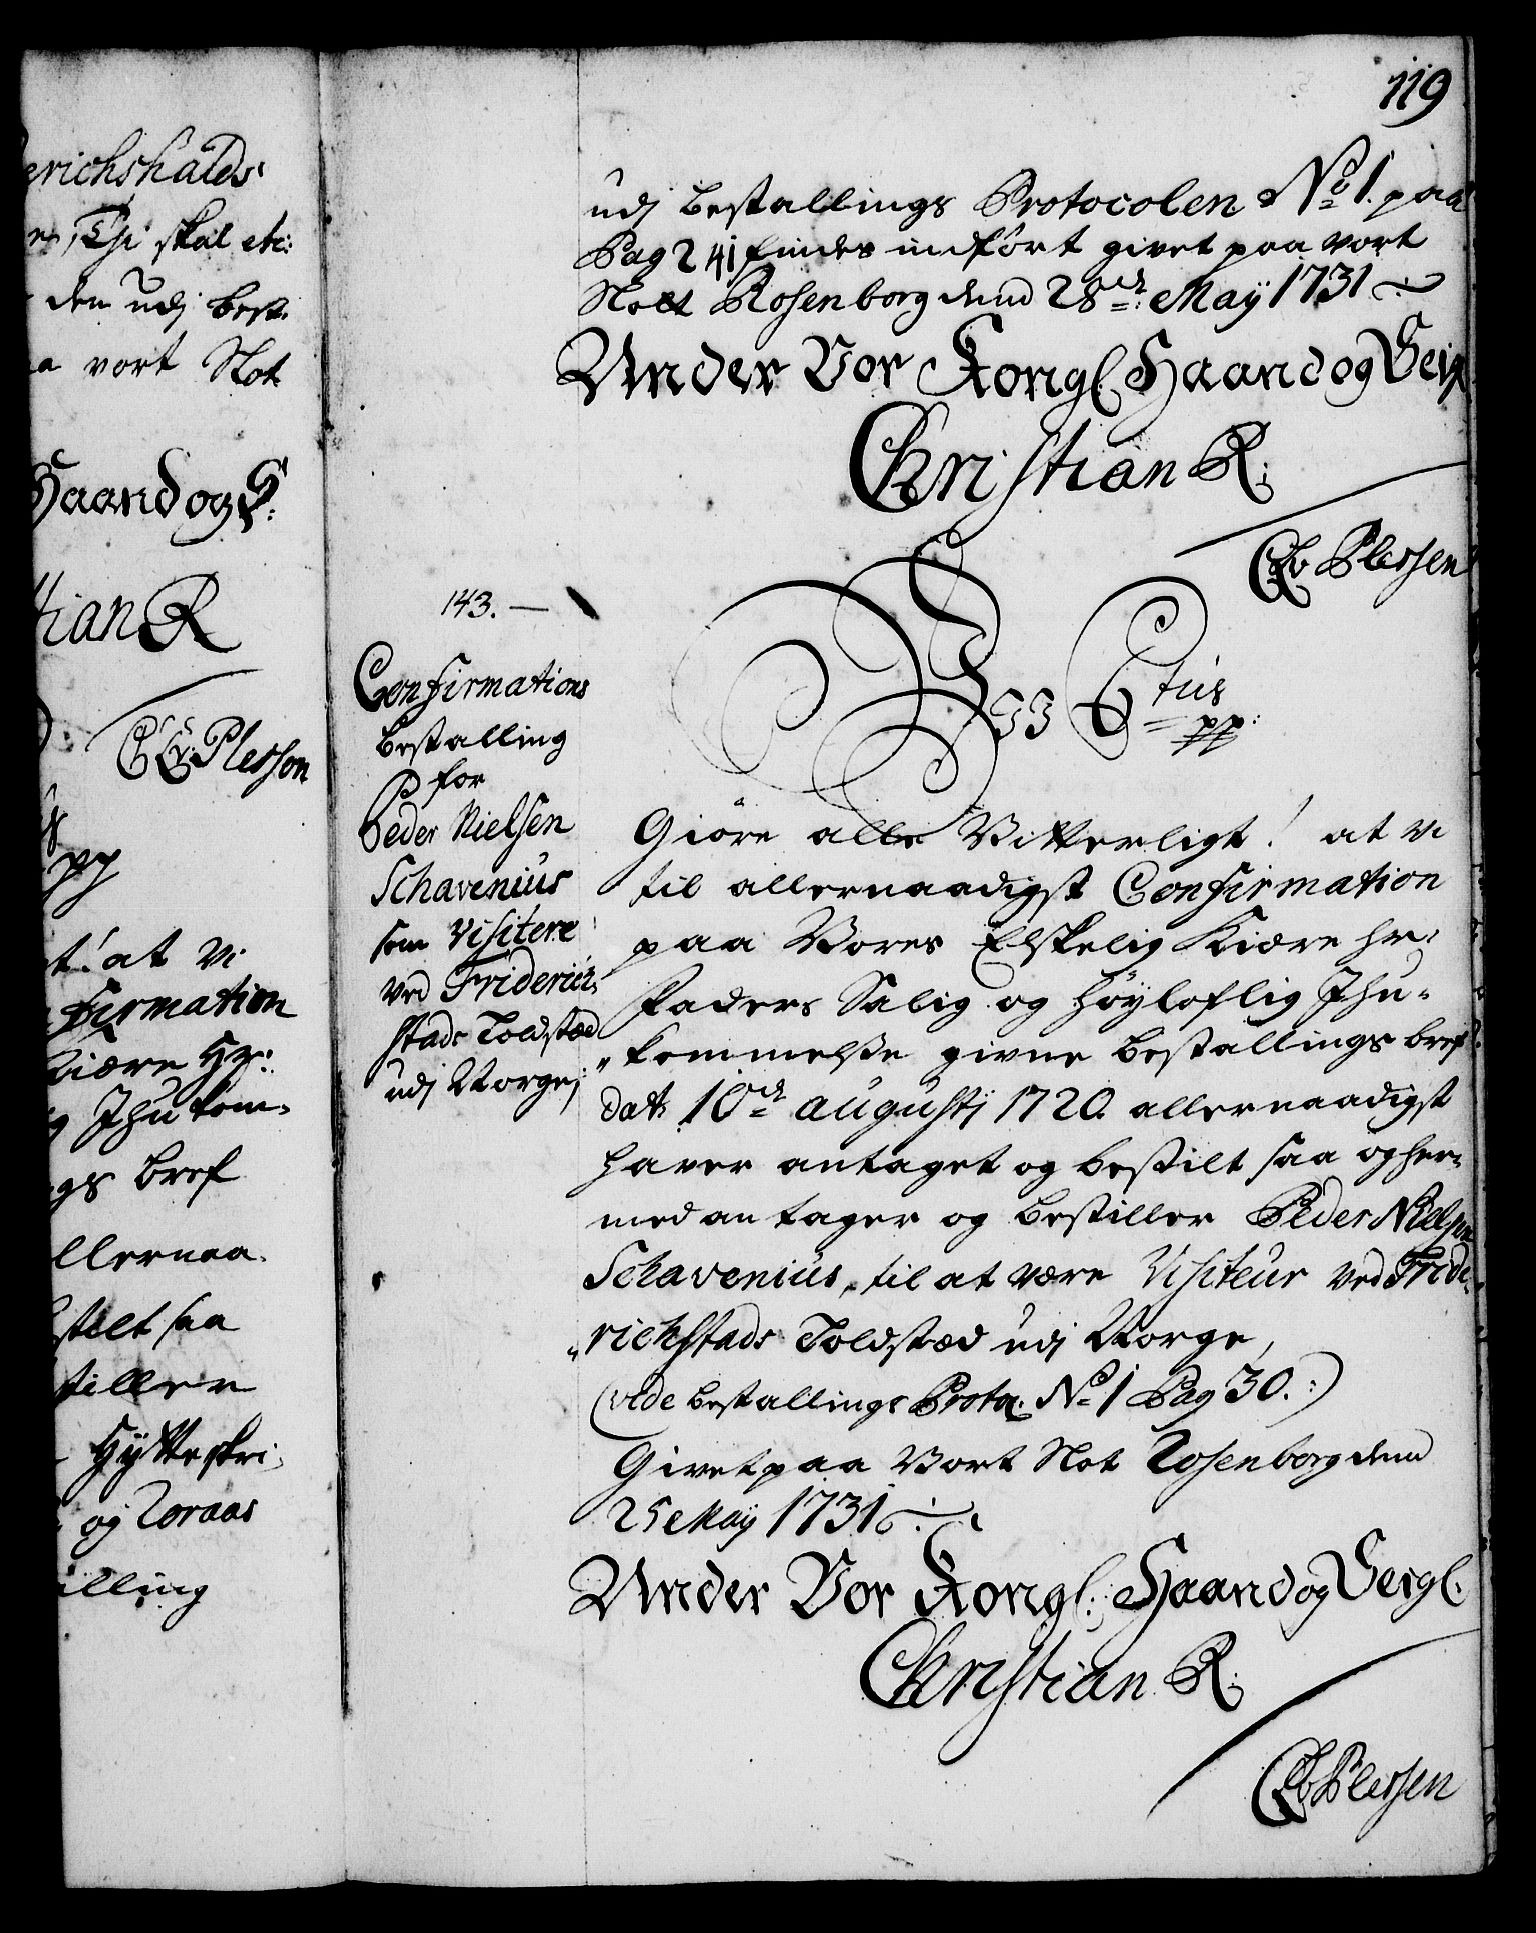 119
erichshalds
Thi skal etc:
den udj best:
a vort Slot
Haand og S:
tian R
C A v: Plessen
pp
t! at vi
firmation
Kiære Hr:
g Ihukom-
gs bref
llernaa-
stilt saa
stiller
Hytteskri-
og Roraas
illing
udj bestallings Protocolen No 1. paa
Pag 241 findes indført givet paa vort
Slott Rosenborg dend 28de May 1731
Under Vor Kongl. Haand og Seigl
Christian R:
C A v Plessen
143. —
Confirmations
bestalling
for
Peder Nielsen
Schavenius
som Visitere
ved Friderich-
stads Toldstæd
udj Norge;
Wii C 6tus
pp:
Giöre alle Vitterligt! at vi
til allernaadigst Confirmation
paa Vores Elskelig Kiære Hr:
Faders Salig og Höyloflig Ihu-
kommelse givne bestallings bref
dat: 10de augustj 1720. allernaadigst
haver antaget og bestilt saa og her-
med antager og bestiller Peder Nielsen
Schavenius, til at være Visiteur ved Fride-
richstads Toldstæd udj Norge,
(vide bestallings Protoc. No 1 Pag 30.:)
Givet paa Vort Slot Rosenborg dend
25 May 1731
Under Vor Kongl: Haand og Seigl.
Christian R:
C A v Plessen